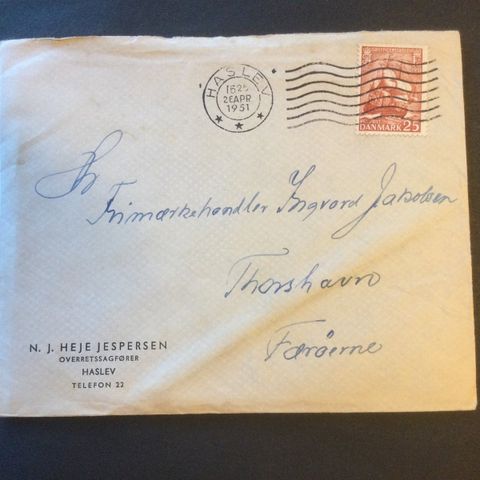 HASLEV
1625
26APR.
1951
DANMARK 25
Hr
Frimærkehandler Ingvard Jakobsen
Thorshavn
Færøerne
N. J. HEJE JESPERSEN
OVERRETSSAGFØRER
HASLEV
TELEFON 22